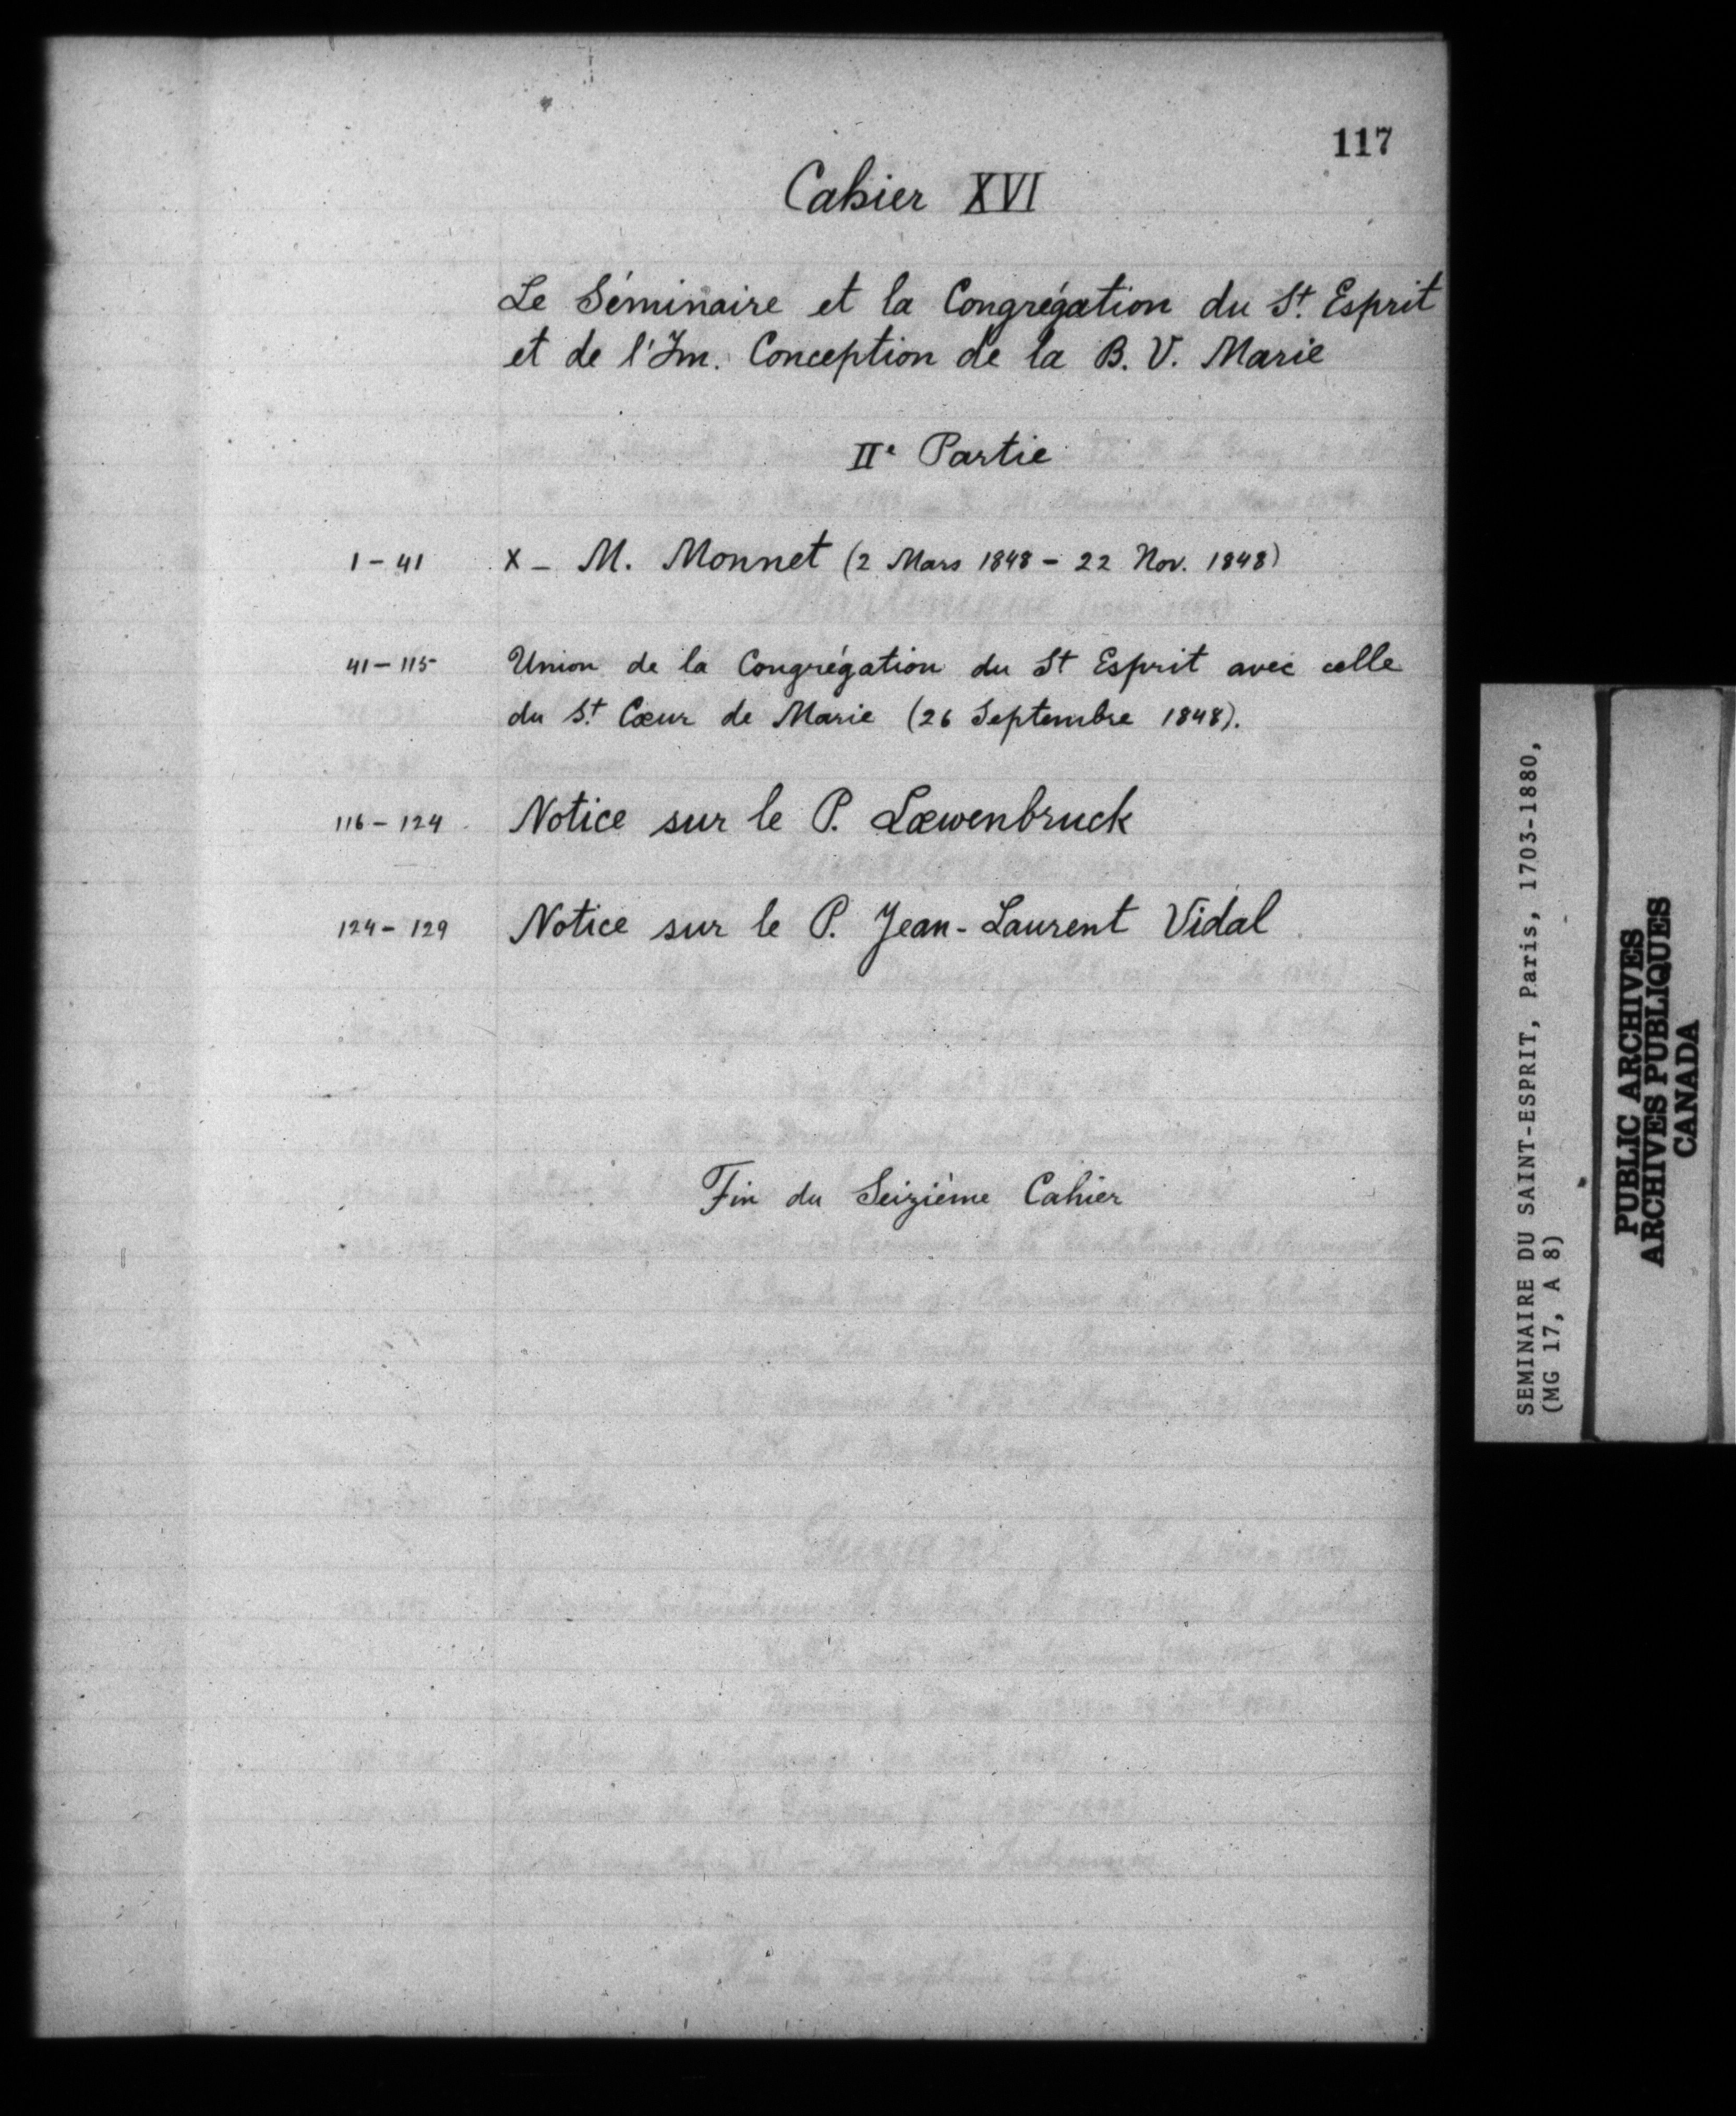 117
Cahier XVI
Le Séminaire et la Congrégation du St. Esprit
et de l'Im. Conception de la B. V. Marie
IIe Partie
1 - 41 X - M. Monnet (2 Mars 1848 - 22 Nov. 1848)
41 - 115 Union de la Congrégation du St Esprit avec celle
du St. Cœur de Marie (26 Septembre 1848).
116 - 124 Notice sur le P. Lœwenbruck
124 - 129 Notice sur le P. Jean-Laurent Vidal
Fin du Seizième Cahier
SEMINAIRE DU SAINT-ESPRIT, Paris, 1703-1880,
(MG 17, A 8)
PUBLIC ARCHIVES
ARCHIVES PUBLIQUES
CANADA